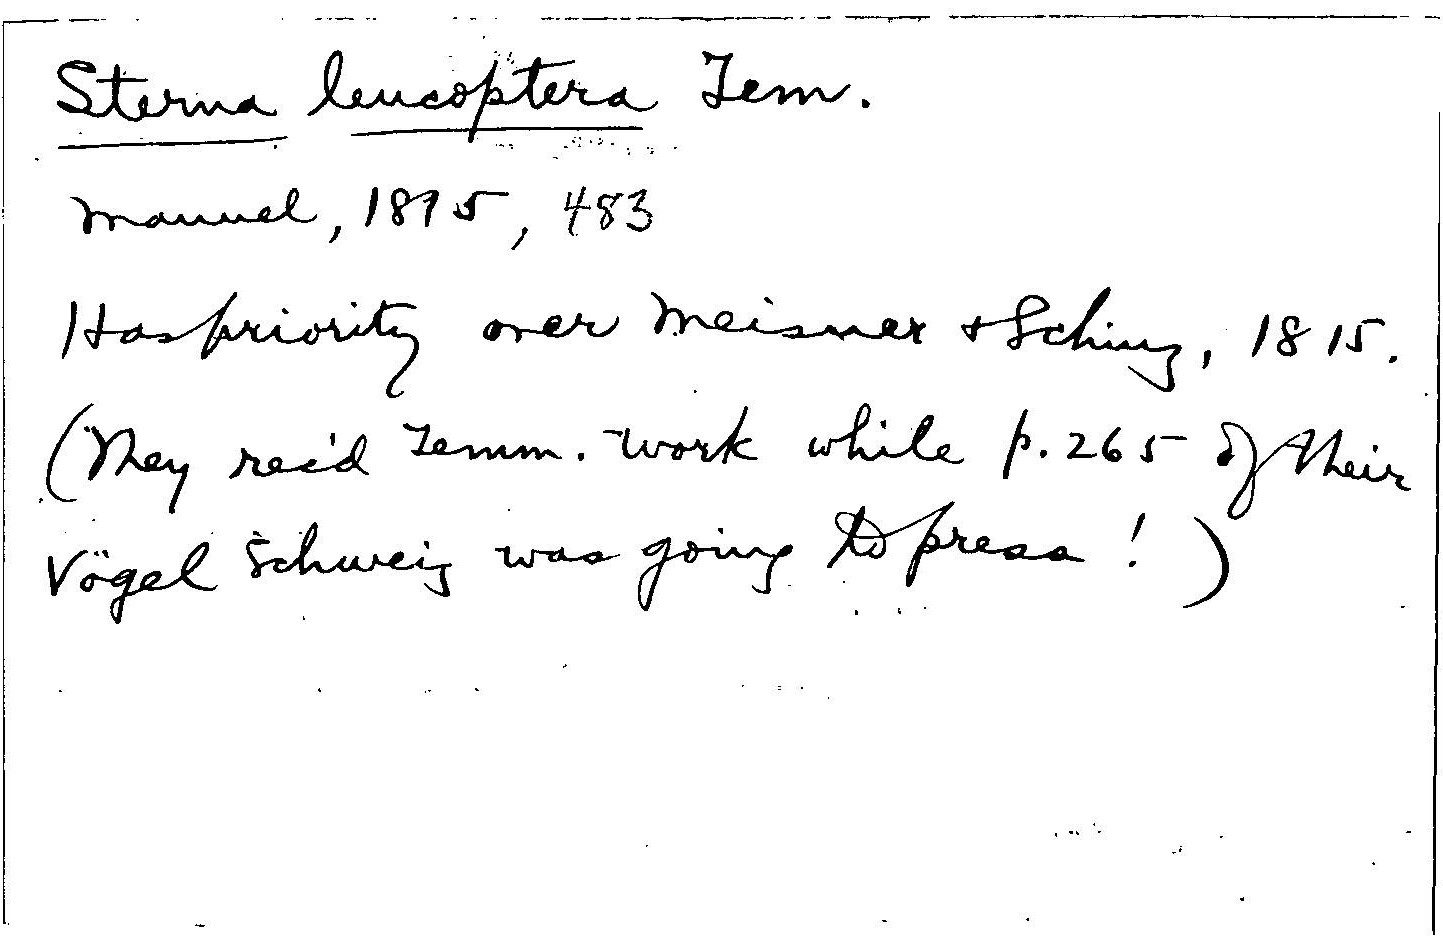 Sterna leucoptera Tem.
Manuel, 1815, 483
Has priority over Meisner & Schinz, 1815.
(They rec'd Temm. work while p. 265 of their
Vögel Schweiz was going to press!)